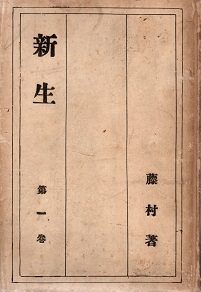 新生
第一卷
藤村著